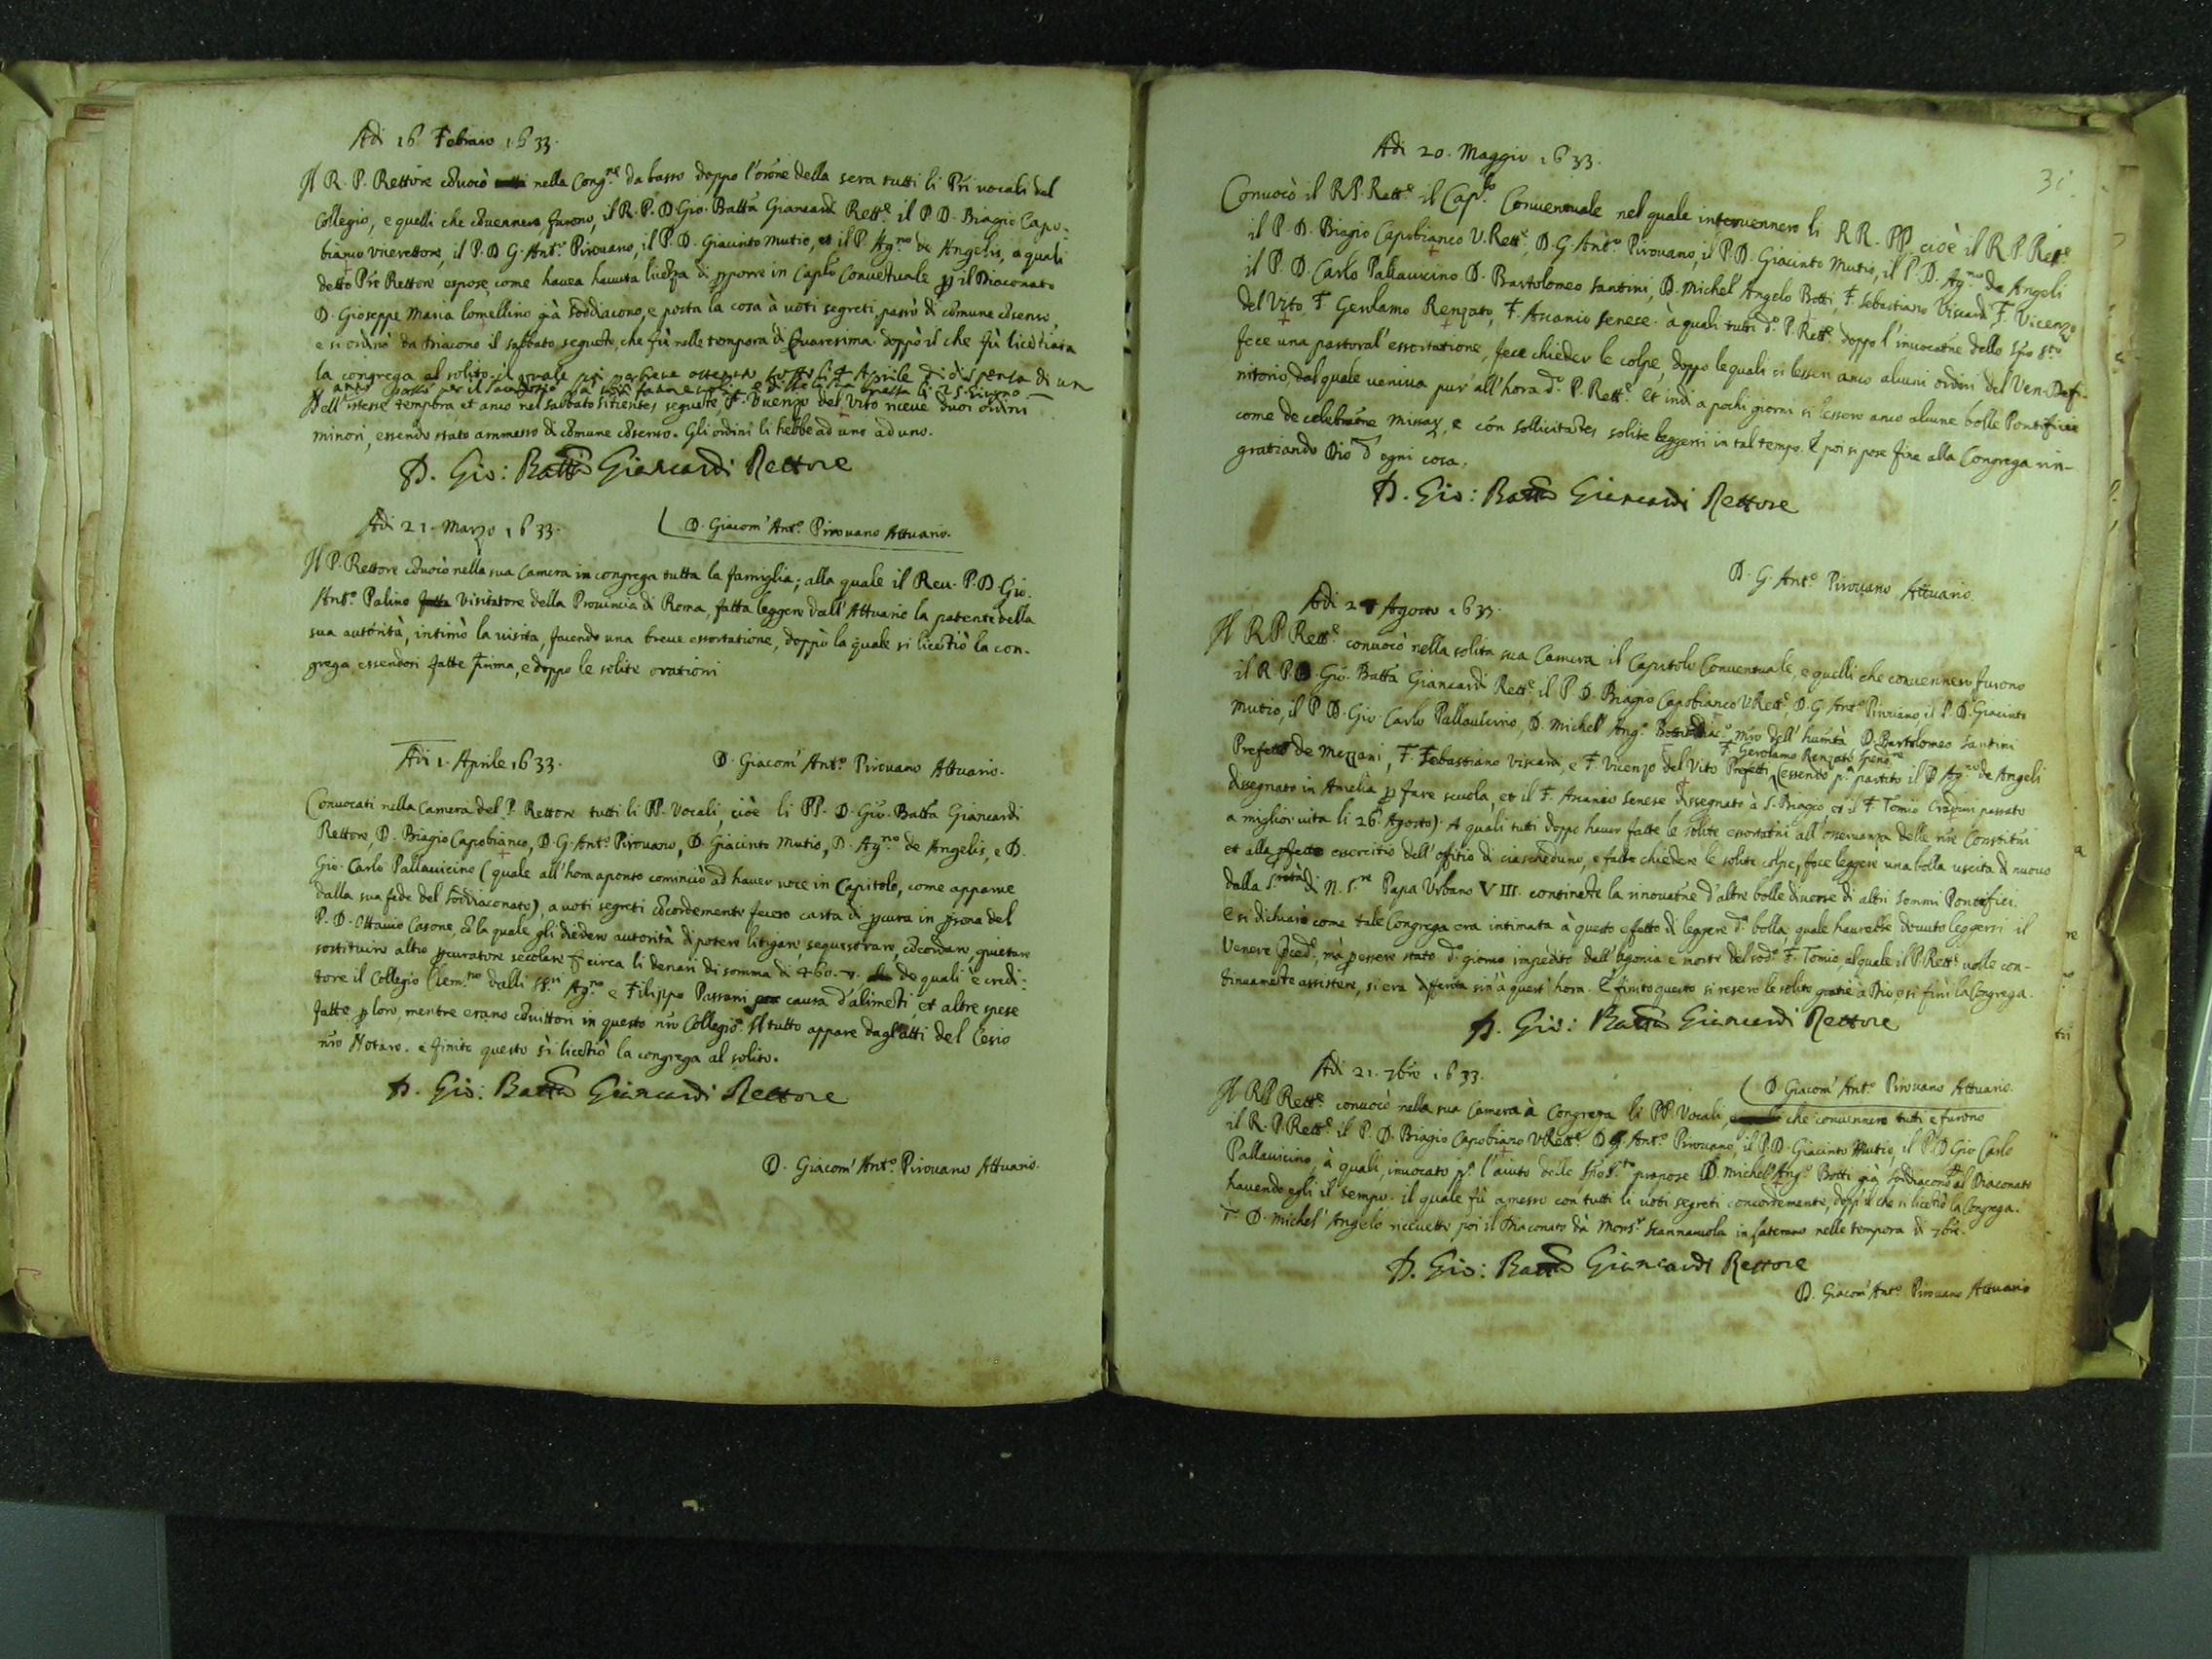 Adi 16 Febraio 1633.
Il R. P. Rettore cõuocò nella Cong.ne da basso doppo l'orõne della sera tutti li Pri uocali del
Collegio, e quelli che cõuennero furono, il R. P. D. Gio. Batta Giancardi Rett.e il P. D. Biagio Capo-
bianco vicerettore, il P. D. G. Ant.o Pirouano, il P. D. Giacinto Mutio, et il P. Ag.no de Angelis, a quali
detto Pre Rettore espose, come hauea hauuta licẽza di proporre in Caplo Conuẽtuale p il Diaconato
D. Gioseppe Maria Lomellino già sodiacono, e posta la cosa à uoti segreti, passò di cõmune cõsenso
e si ordinò da Diacono il sabbato seguẽte, che fù nelle tempora di Quaresima. doppò il che fù licẽtiata
la congrega al solito. il quale poi Aprile di dispensa di un
anno
Nell'istesse tempora et anco nel sabbato sitientes seguẽte, F. Vicenzo del Vito riceuè duoi ordini
minori, essendo stato ammesso di cõmune cõsenso. Gli ordini li hebbe ad uno ad uno.
D. Gio: Batta Giancardi Rettore
D. Giacom' Ant.o Pirouano Attuario.
Adi 21. Marzo 1633.
Il P. Rettore cõuocò nella sua Camera in congrega tutta la famiglia; alla quale il Reu. P. D. Gio.
Ant.o Palino Visitatore della Prouincia di Roma, fatta leggere dall'Attuario la patente della
sua autorità, intimò la uisita, facendo una breue essortatione, doppò la quale si licẽtiò la con-
grega, essendosi fatte prima, e doppo le solite orationi
D. Giacom' Ant.o Pirouano Attuario.
Adi 1. Aprile 1633.
Conuocati nella Camera del P. Rettore tutti li PP. Vocali, cioè li PP. D. Gio. Batta Giancardi
Rettore, D. Biagio Capobianco, D. G. Ant.o Pirouano, D. Giacinto Mutio, D. Ag.no de Angelis, e D.
Gio. Carlo Pallauicino (quale all'hora aponto cominciò ad hauer uoce in Capitolo, come appare
dalla sua fede del sodiaconato), a uoti segreti cõcordemente fecero carta di pcura in psona del
P. D. Ottauio Casone, cõ la quale gli diedero autorità di potere litigare, sequestrare, cõcordare, quietare
sostituire altro pcuratore secolare circa li denari di somma di 460. de quali è credi-
tore il Collegio Clem.no dalli SS.ri Ag.no e Filippo Passani causa d'alimẽti, et altre spese
fatte p loro, mentre erano cõuittori in questo nro Collegio. Il tutto appare dagl'atti del Cesio
nro Notaro. e finito questo si licẽtiò la congrega al solito.
D. Gio: Batta Giancardi Rettore
D. Giacom' Ant.o Pirouano Attuario.
31
Adi 20. Maggio 1633.
Conuocò il R. P. Rett.e il Cap.lo Conuentuale nel quale interuennero li RR. PP. cioè il R. P. Rett.e
il P. D. Biagio Capobianco V. Rett.e, D. G. Ant.o Pirouano, il P. D. Giacinto Mutio, il P. D. Ag.no de Angeli
il P. D. Carlo Pallauicino D. Bartolomeo Santini, D. Michel' Angelo Botti, F. Sebastiano Viscardi, F. Vicenzo
del Vito, F. Gerolamo Renzato, F. Ascanio Senese. à quali tutti d.o P. Rett.e doppo l'inuocatne dello Spo S.to
fece una pastoral' essortatione, fece chieder le colpe, doppo le quali si lessero anco alcuni ordini del Ven. Defi-
nitorio, dal quale ueniua pur' all'hora d.o P. Rett.e Et indi a pochi giorni si lessero anco alcune bolle Pontificie
come de celebratne Missar, e cõn sollicitates solite leggersi in tal tempo. E poi si pose fine alla Congrega rin-
gratiando Dio d'ogni cosa.
D. Gio: Batta Giancardi Rettore
D. G. Ant.o Pirouano Attuario.
Adi 27 Agosto 1633.
Il R. P. Rett.e conuocò nella solita sua Camera il Capitolo Conuentuale, e quelli che conuennero furono
il R. P. D. Gio. Batta Giancardi Rett.e, il P. D. Biagio Capobianco V. Rett.e, D. G. Ant.o Pirouano, il P. D. Giacinto
Mutio, il P. D. Gio. Carlo Pallauicino, D. Michel' Ang.o Botti Diac.o mro dell'humtà D. Bartolomeo Santini
Prefetto de Mezzani, F. Sebastiano Viscardi, e F. Vicenzo del Vito Prefetti, F. Gerolamo Renzato (essendo p.a partito il P. Ag.no de Angeli
dissegnato in Amelia p fare scuola, et il F. Ascanio Senese dissegnato à S. Biagio, et il F. Tomio passato
a miglior uita li 26. Agosto). A quali tutti doppo hauer fatte le solite essortatni all'osseruanza delle nre Constitni
et alla essercitio dell'offitio di ciascheduno, e fatte chiedere le solite colpe, fece leggere una bolla uscita di nuouo
dalla S.tà di N. S.re Papa Vrbano VIII. continẽte la rinouatne d'altre bolle diuerse di altri Sommi Pontefici.
E si dichiarò come tale Congrega era intimata à questo effetto di leggere d.a bolla, quale haurebbe douuto leggersi il
Venere pced.e, mà p essere stato d.o giorno impedito dall'agonia e morte del sod.o F. Tomio, al quale il P. Rett.e uolle con-
tinuamẽte assistere, si era differita sin' à quest' hora. E finito questo si resero le solite gratie à Dio e si finì la Congrega.
D. Gio: Batta Giancardi Rettore
D. Giacom' Ant.o Pirouano Attuario.
Adi 21. 7bre 1633.
Il R. P. Rett.e conuocò nella sua Camera à Congrega li PP. Vocali, che conuennero tutti e furono
il R. P. Rett.e il P. D. Biagio Capobianco V. Rett.e D. G. Ant.o Pirouano, il P. D. Giacinto Mutio, il P. D. Gio Carlo
Pallauicino, à quali, inuocato p.a l'aiuto dello Spo S.to propose D. Michel' Ang.o Botti già Sodiacono al Diaconato
hauendo egli il tempo. il quale fù amesso con tutti li uoti segreti concordemente, dopp' il che si licẽtiò la Congrega.
D. Michel' Angelo riceuette poi il Diaconato da Mons.r Scannauola in Laterano nelle tempora di 7bre.
D. Gio: Batta Giancardi Rettore
D. Giacom' Ant.o Pirouano Attuario